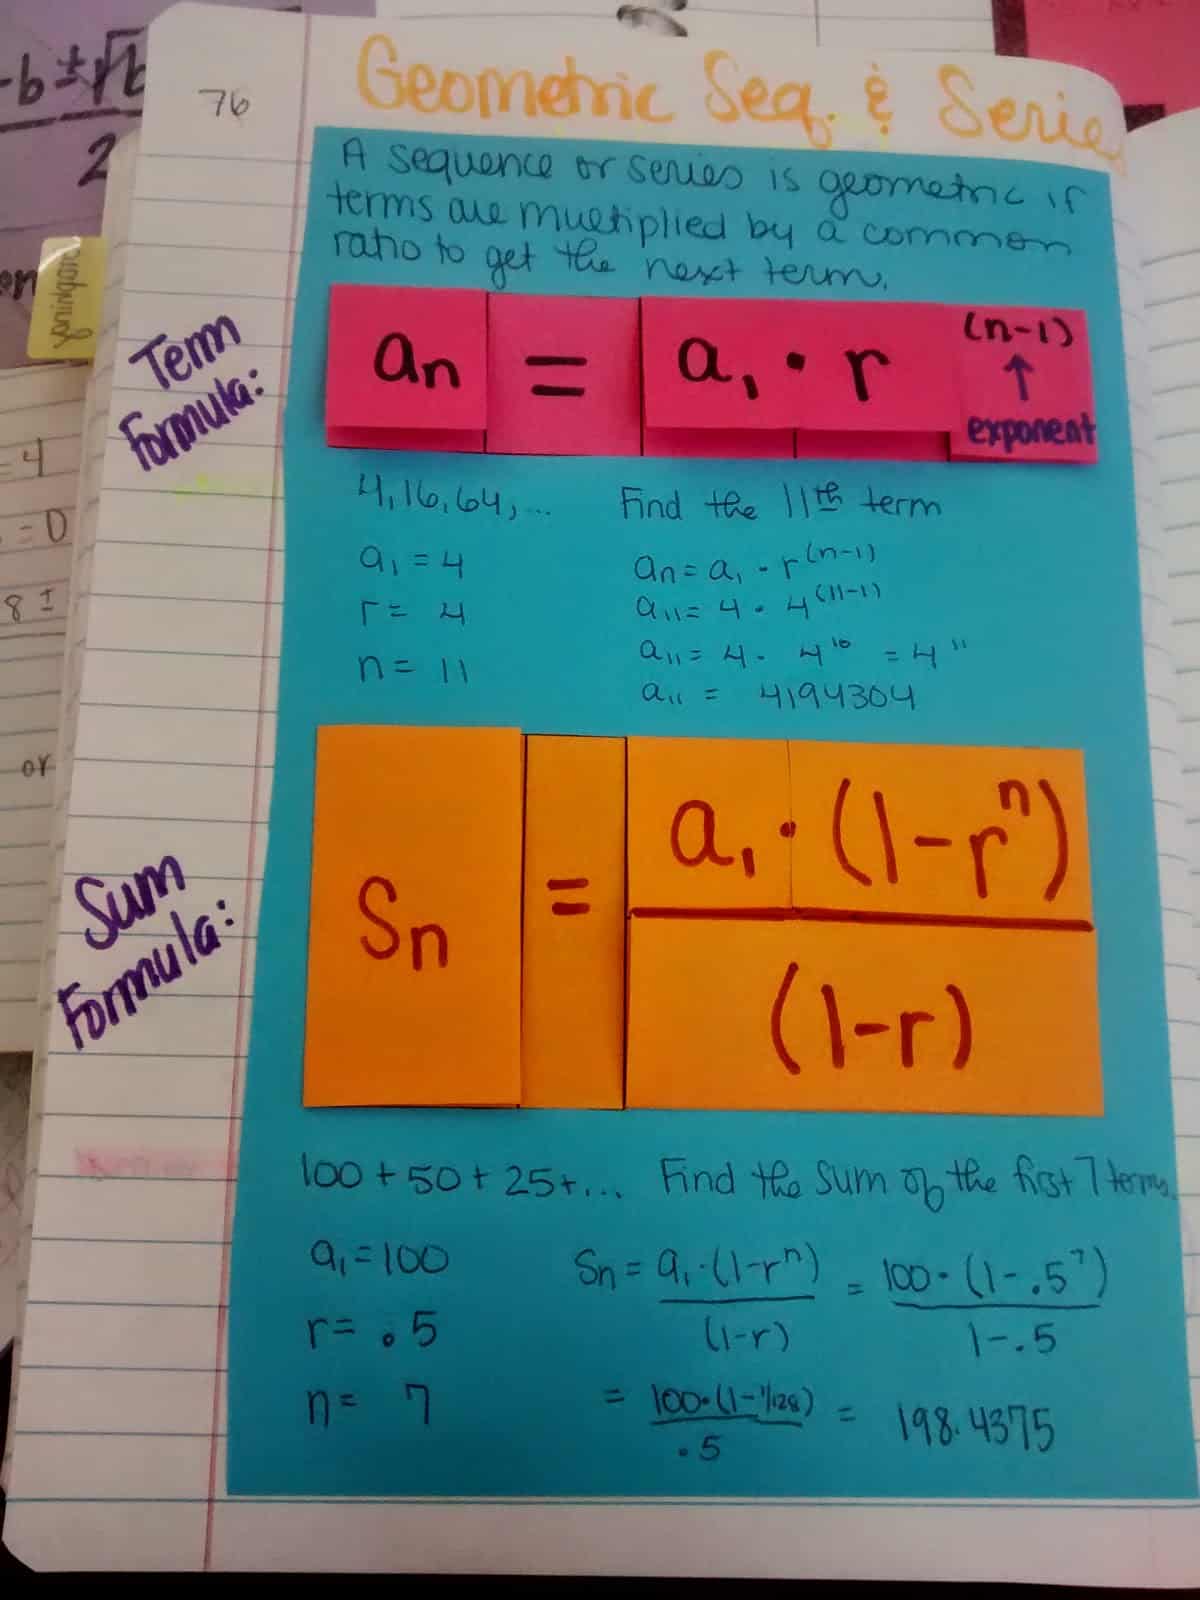 -b ± √b
2
76
Geometric Seq. & Serie
A sequence or series is geometric if
terms are multiplied by a common
ratio to get the next term.
Term
Formula:
an = a1 · r (n-1)
↑
exponent
4, 16, 64, ... Find the 11th term
a1 = 4
r = 4
n = 11
an = a1 · r^(n-1)
a11 = 4 · 4^(11-1)
a11 = 4 · 4^10 = 4^11
a11 = 4194304
Sum
Formula:
Sn = a1 · (1-r^n)
(1-r)
100 + 50 + 25 + ... Find the sum of the first 7 terms.
a1 = 100
r = .5
n = 7
Sn = a1 · (1-r^n) = 100 · (1-.5^7)
(1-r) 1-.5
= 100 · (1-1/128) = 198.4375
.5
= 4
= 0
8 ±
or